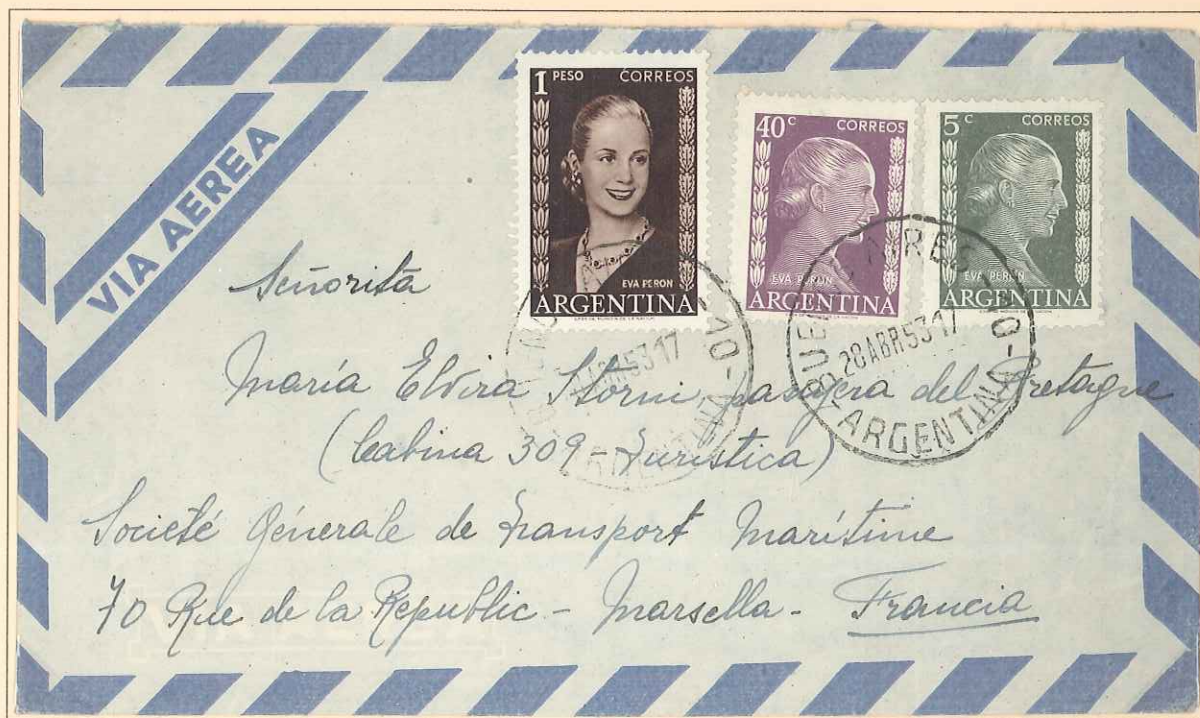 VIA AEREA
1 PESO CORREOS
EVA PERON
ARGENTINA
40 C CORREOS
EVA PERON
ARGENTINA
5 C CORREOS
EVA PERON
ARGENTINA
28 ABR 53 17
ARGENTINA
Señorita
María Elvira Storni, pasajera del Bretagne
(Cabina 309 - Turística)
Societé Génerale de Transport Marítime
70 Rue de la Republic - Marsella - Francia